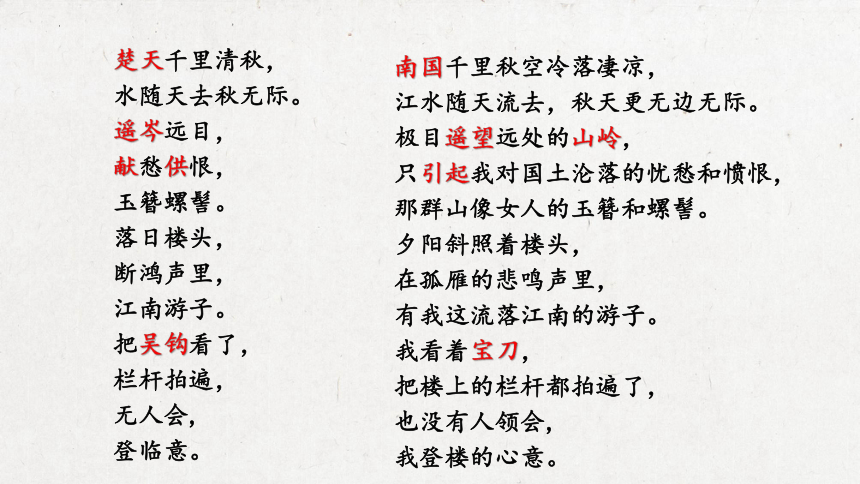 楚天千里清秋，
水随天去秋无际。
遥岑远目，
献愁供恨，
玉簪螺髻。
落日楼头，
断鸿声里，
江南游子。
把吴钩看了，
栏杆拍遍，
无人会，
登临意。
南国千里秋空冷落凄凉，
江水随天流去，秋天更无边无际。
极目遥望远处的山岭，
只引起我对国土沦落的忧愁和愤恨，
那群山像女人的玉簪和螺髻。
夕阳斜照着楼头，
在孤雁的悲鸣声里，
有我这流落江南的游子。
我看着宝刀，
把楼上的栏杆都拍遍了，
也没有人领会，
我登楼的心意。